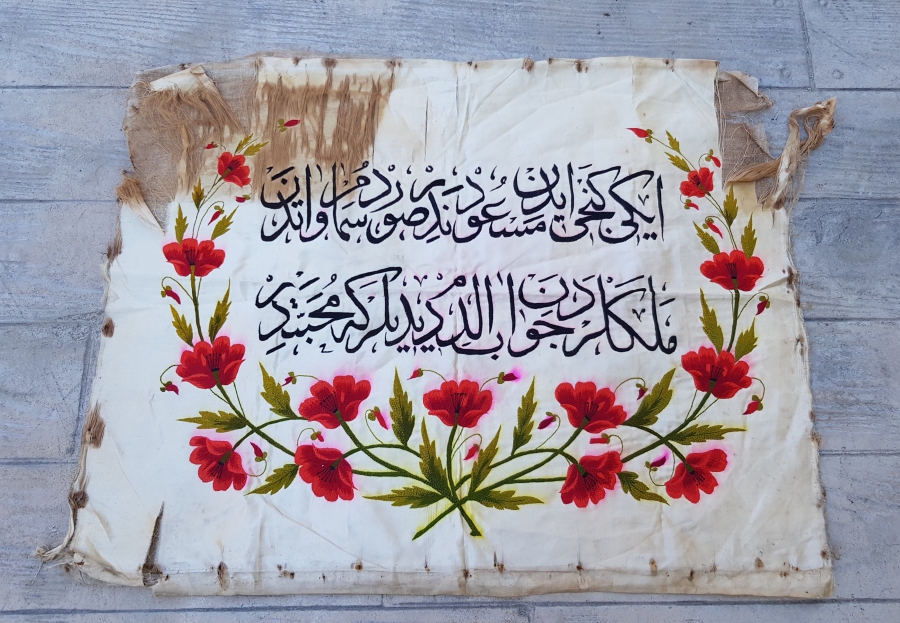 ایکی کنجی ایدن مسعود ندر صوردم سماواتدن
ملکلردن جواب الدم دیدیلر که محبتدر